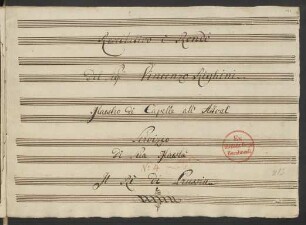 Recitativo e Rondò
Del Sigr Vincenzo Righini
Maestro di Capella all' Attual
Servizzo
di Sua Maestà
Il Rè di Prussia